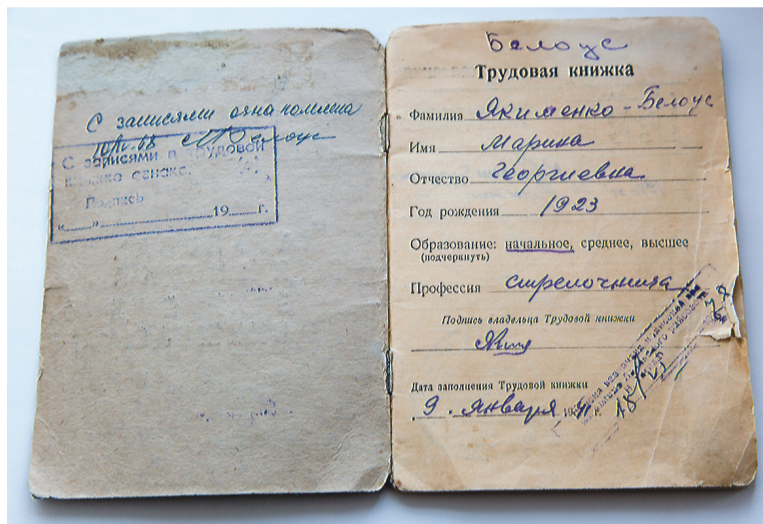 С записями ознакомлена
Белоус
С записями в трудовой
книжке ознако
Подпись
«___»___________19___г.
Белоус
Трудовая книжка
Фамилия Якименко-Белоус
Имя Марина
Отчество Георгиевна
Год рождения 1923
Образование: начальное, среднее, высшее
(подчеркнуть)
Профессия стрелочница
Подпись владельца Трудовой книжки
Дата заполнения Трудовой книжки
9. января 19
18/VI